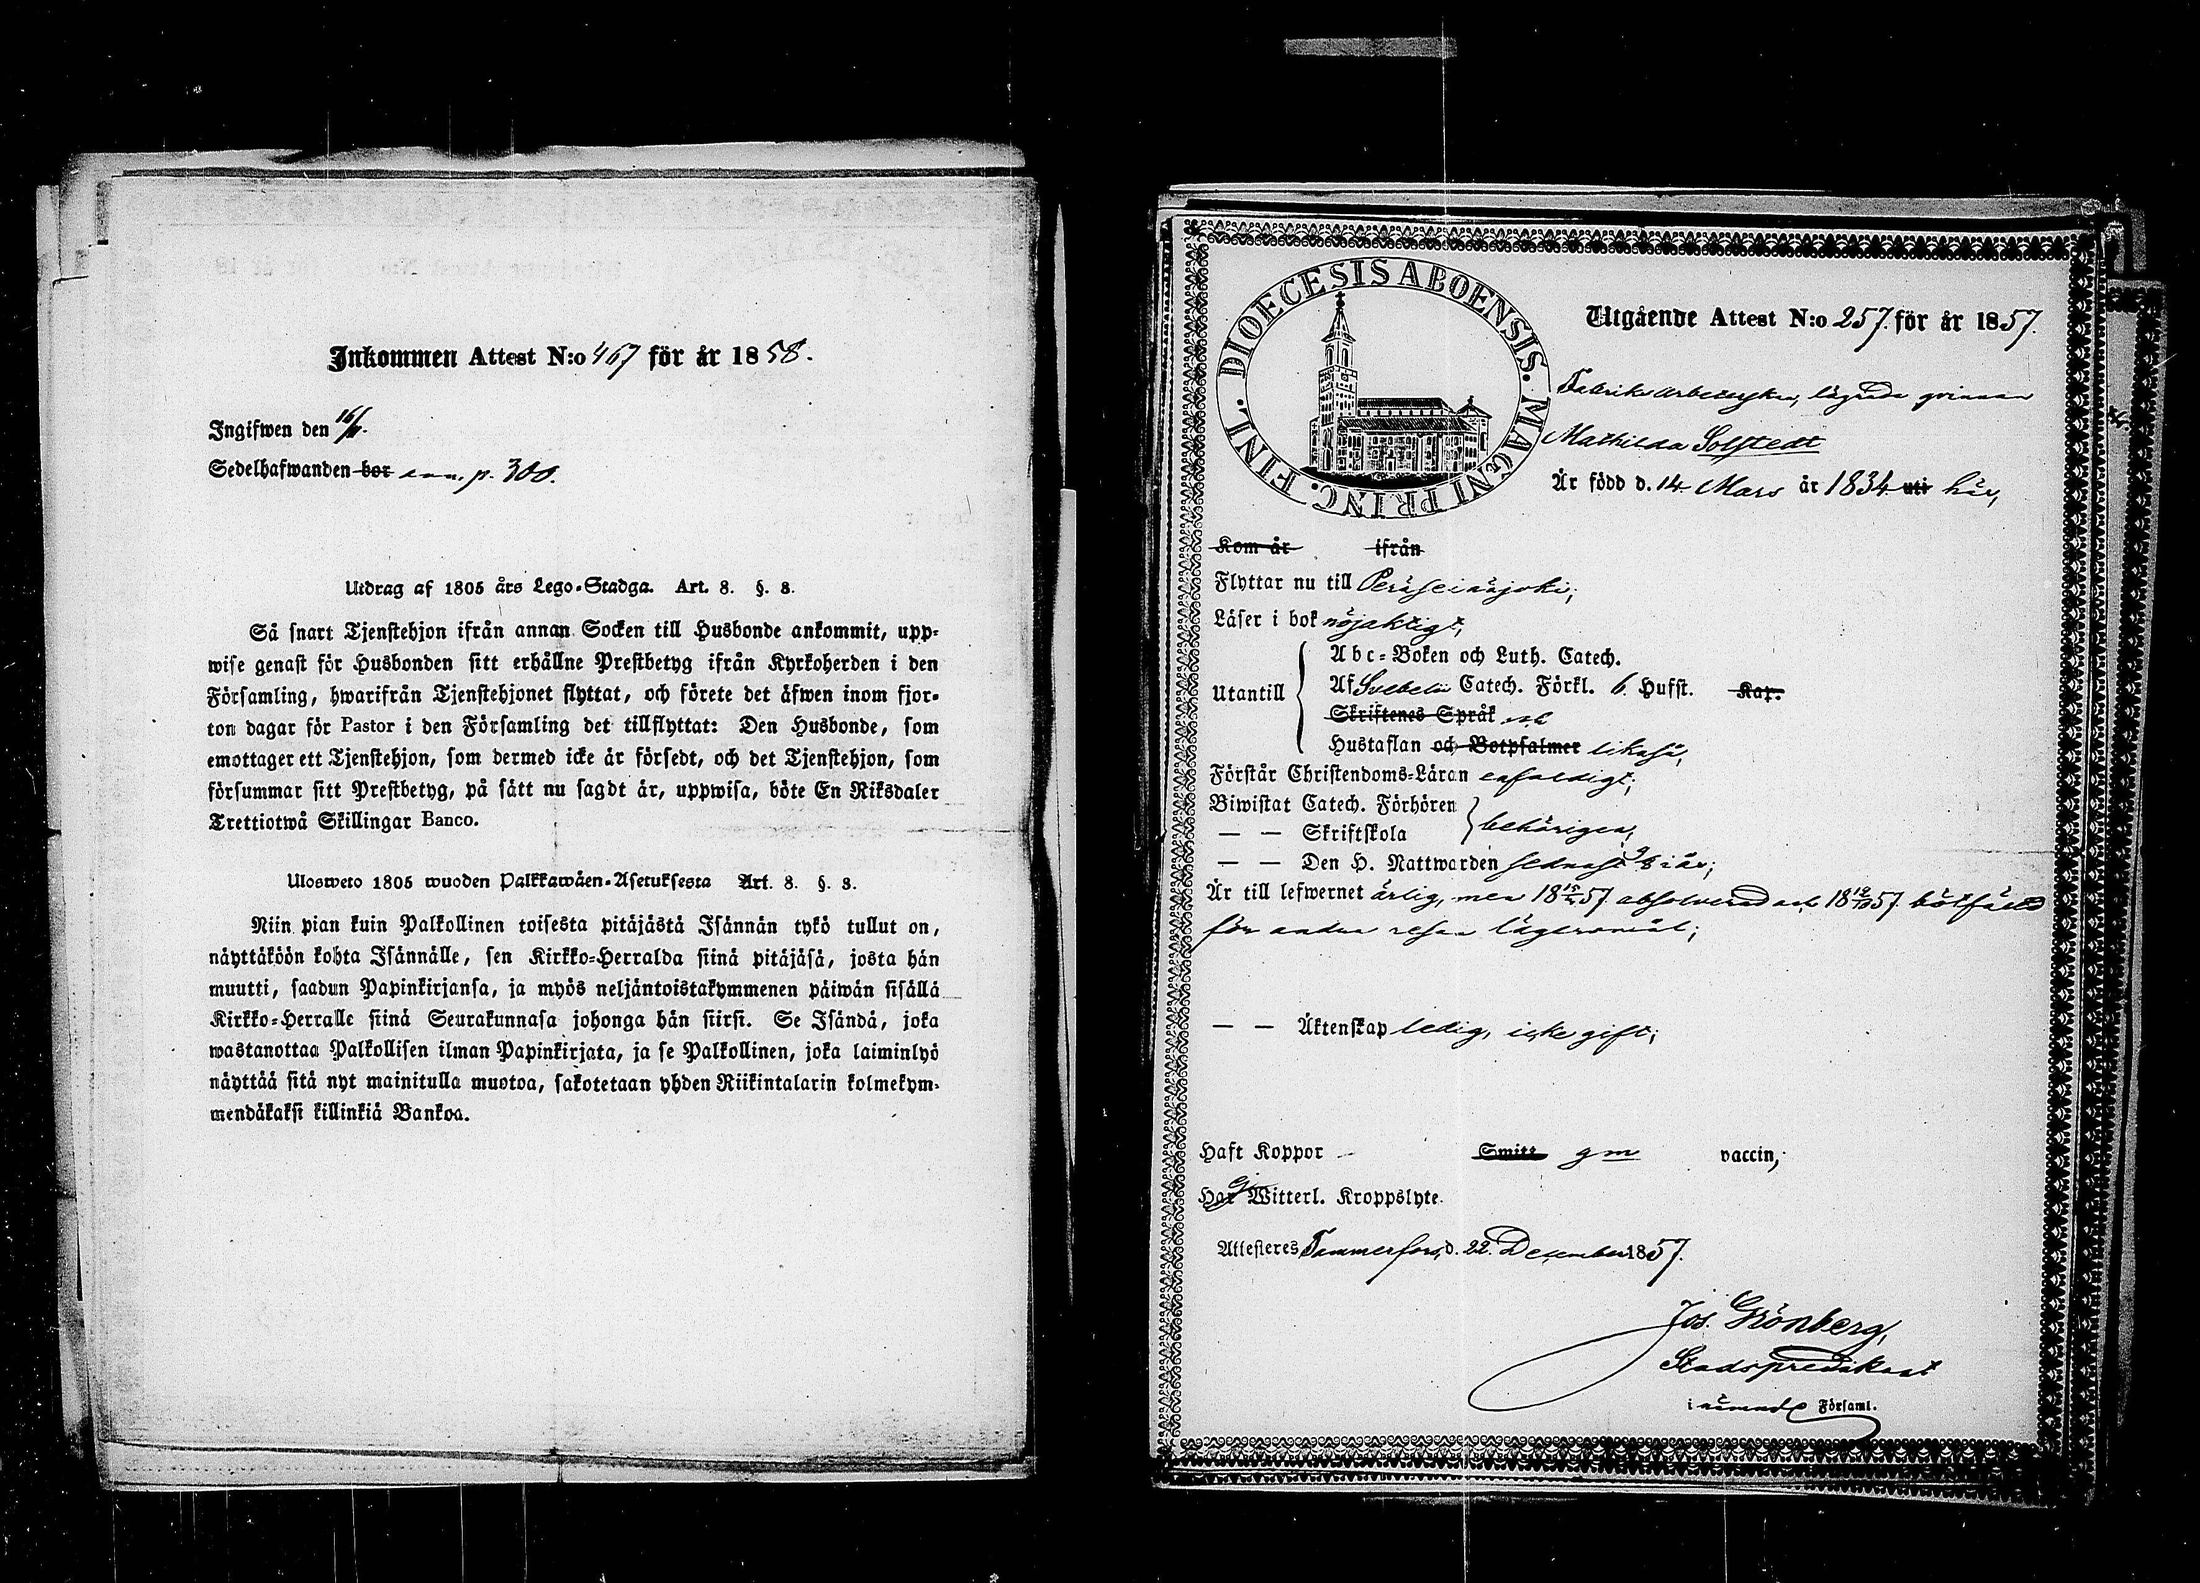 Inkommen Attest N:o 467 för år 1858.
Ingifwen den 16/
Sedelhafwanden bor ann. p. 300.
Utdrag af 1805 års Lego-Stadga. Art. 8. §. 8.
Så snart Tjenstehjon ifrån annan Socken till Husbonde ankommit, upp-
wise genast för Husbonden sitt erhållne Prestbetyg ifrån Kyrkoherden i den
Församling, hwarifrån Tjenstehjonet flyttat, och förete det äfwen inom fjor-
ton dagar för Pastor i den Församling det tillflyttat: Den Husbonde, som
emottager ett Tjenstehjon, som dermed icke är försedt, och det Tjenstehjon, som
försummar sitt Prestbetyg, på sätt nu sagdt är, uppwisa, böte En Riksdaler
Trettiotwå Skillingar Banco.
Ulosweto 1805 wuoden Palkkawäen-Asetuksesta Art. 8. §. 8.
Niin pian kuin Palkollinen toisesta pitäjästä Isännän tykö tullut on,
näyttäköön kohta Isännälle, sen Kirkko-Herralda siinä pitäjäsä, josta hän
muutti, saadun Papinkirjansa, ja myös neljäntoistakymmenen päiwän sisällä
Kirkko-Herralle siinä Seurakunnasa johonga hän siirsi. Se Isändä, joka
wastanottaa Palkollisen ilman Papinkirjata, ja se Palkollinen, joka laiminlyö
näyttää sitä nyt mainitulla muotoa, sakotetaan yhden Riikintalarin kolmekym-
mendäkaksi killinkiä Bankoa.
DIOECESIS ABOENSIS. MAGNI PRINC. FINL.
Utgående Attest N:o 257. för år 1857.
Fabriksarbeterskan, lägrade qvinnan
Mathilda Solfstedt
Är född d. 14. Mars år 1834 uti här,
Kom år ifrån
Flyttar nu till Peräseinäjoki;
Läser i bok nöjaktigt,
Abc-Boken och Luth. Catech.
Utantill Af Svebelii Catech. Förkl. 6. Hufst. Kap.
Skriftenes Språk
Hustaflan och Botpsalmer likaså,
Förstår Christendoms-Läran enfaldigt;
Biwistat Catech. Förhören
— — Skriftskola behörigen;
— — Den H. Nattwarden sednast i år;
Är till lefwernet ärlig, men 18 57 absolverad och 18 57. bötfäld
för andra resan lägersmål;
— — Äktenskap ledig, icke gift;
Haft Koppor – Smitt gm vaccin,
Har Ej Witterl. Kroppslyte.
Attesteres Tammerfors, d. 22. December 1857.
Jos. Grönberg,
Stadspredikant
i nämnde Församl.